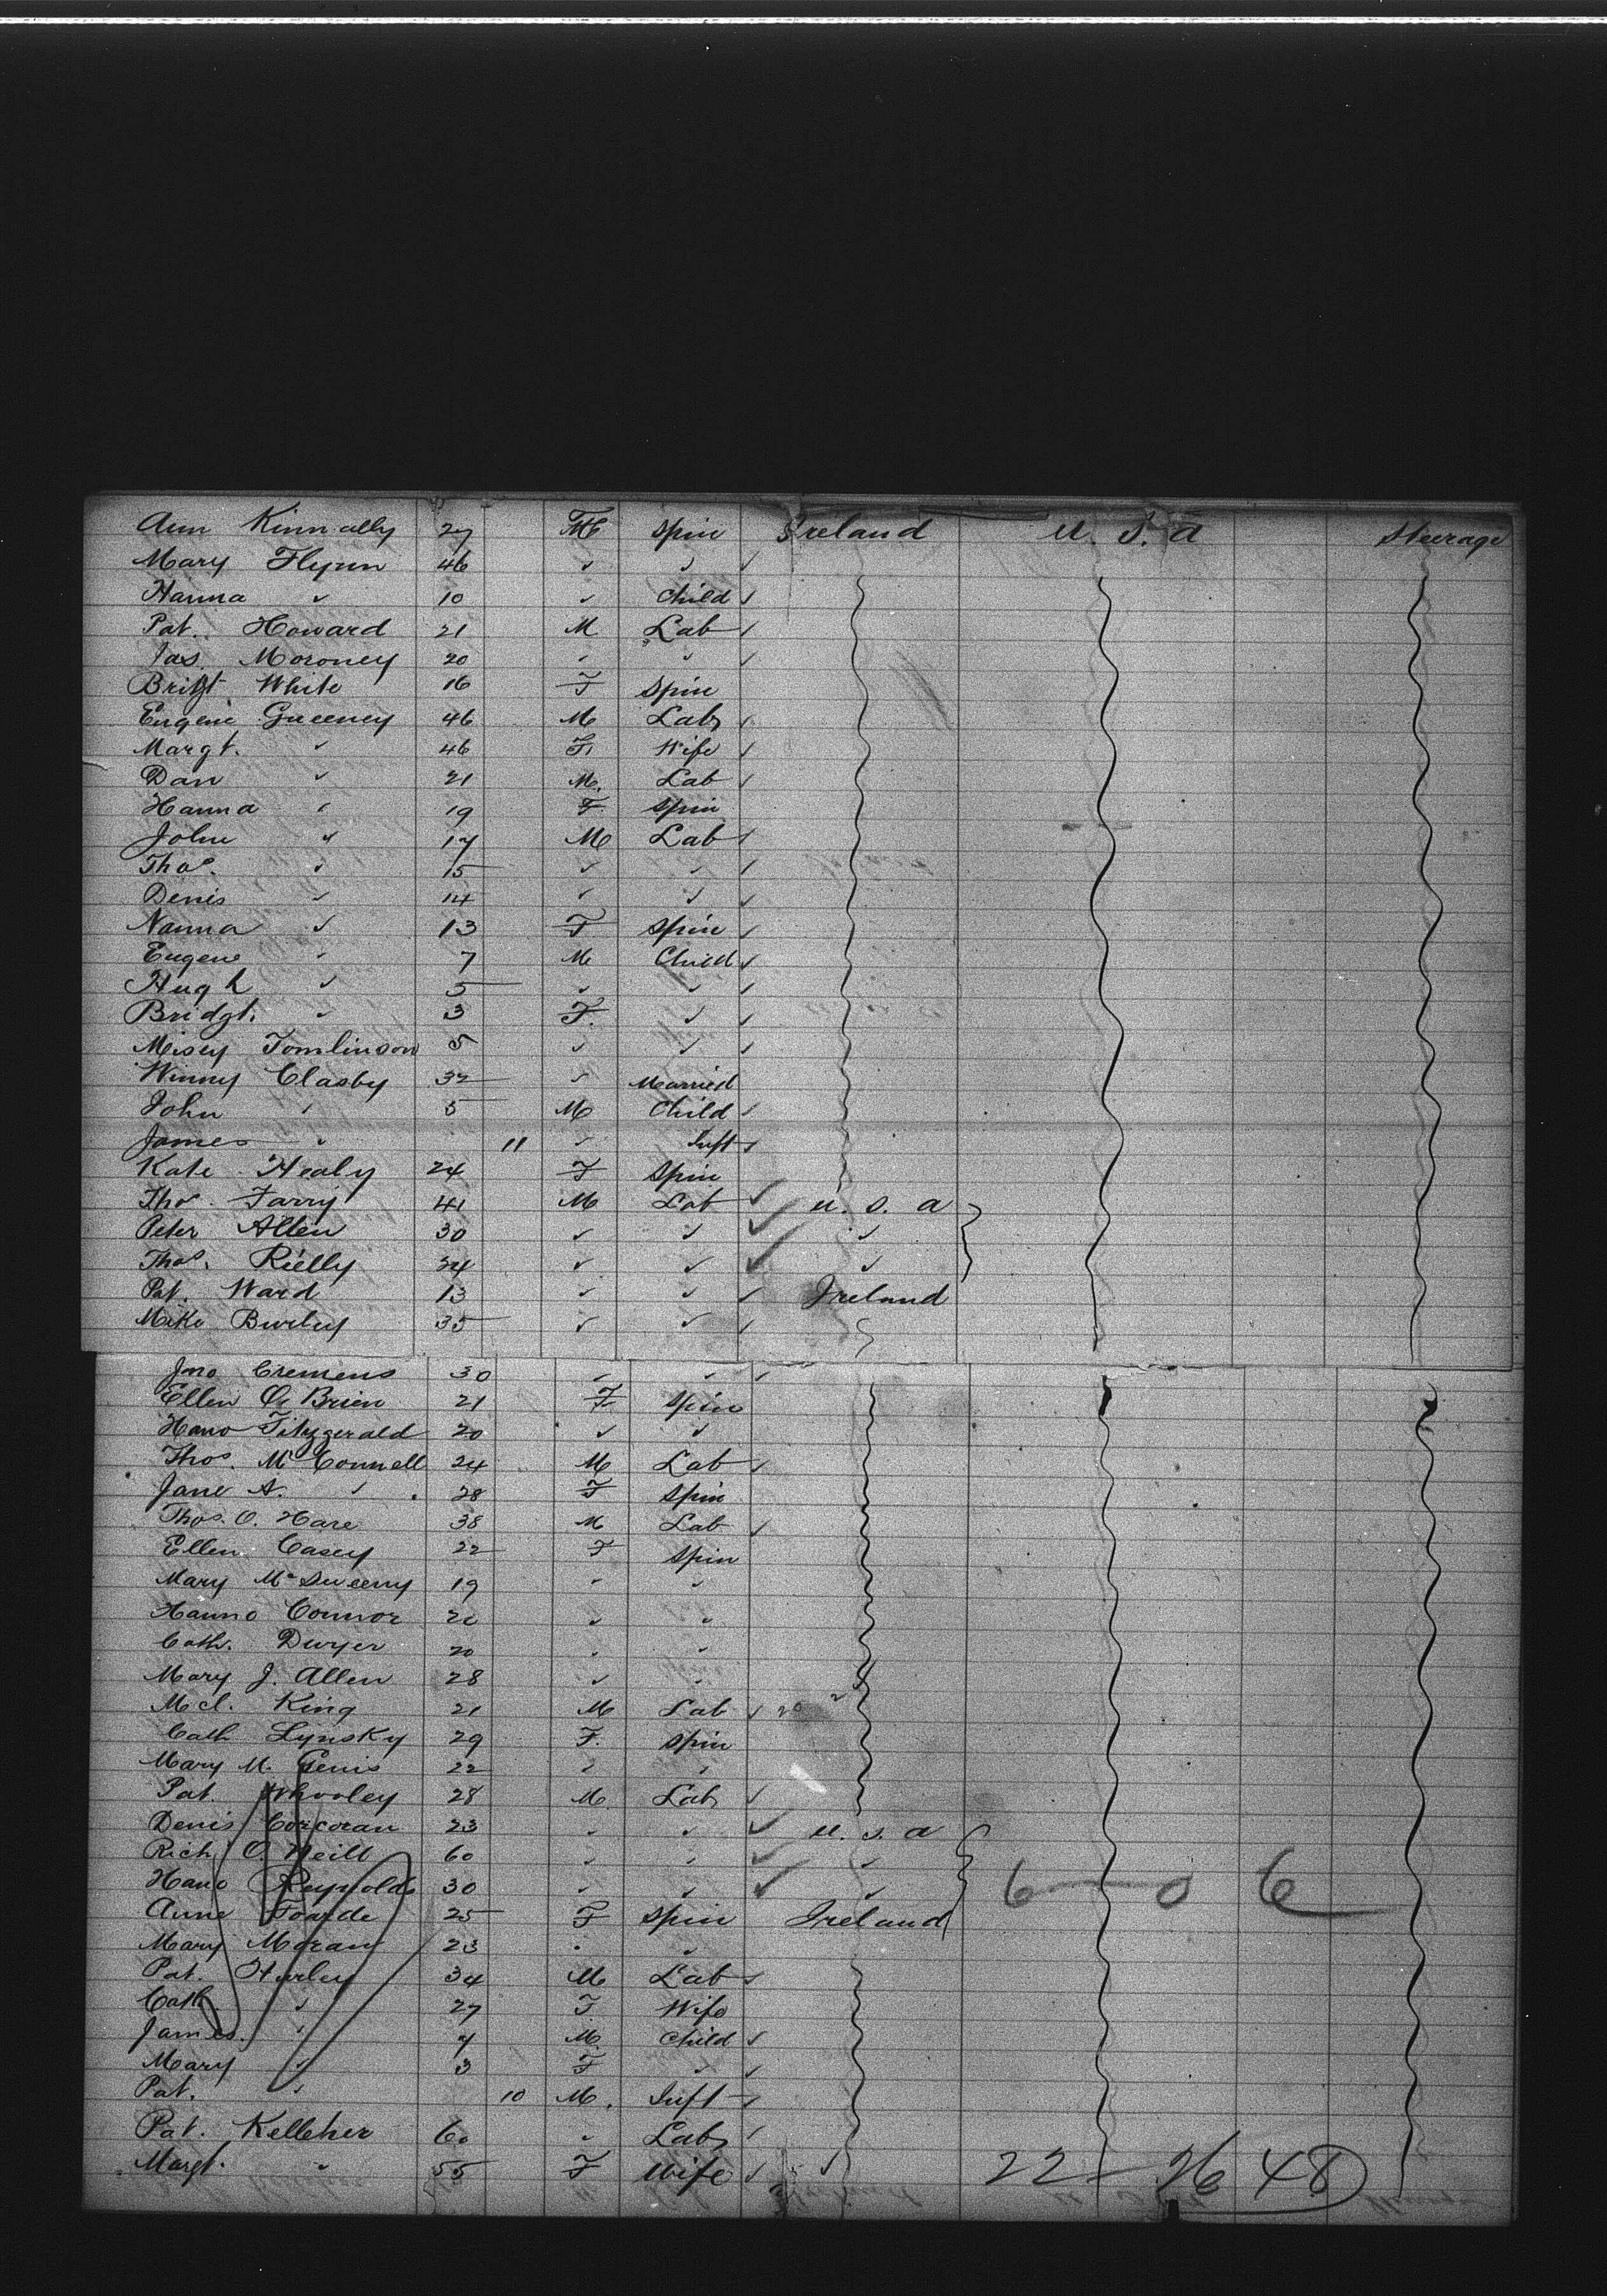 Ann Kinnally 27 F spin Ireland U. S. A Steerage
Mary Flynn 46 ✓ ✓ ✓
Hanna ✓ 10 ✓ Child ✓
Pat. Howard 21 M Lab ✓
Jas. Moroney 20 ✓ ✓ ✓
Bridgt White 16 F Spin
Eugene Greeney 46 M Lab ✓
Margt. ✓ 46 F. Wife ✓
Dan ✓ 21 M. Lab ✓
Hanna ✓ 19 F Spin
John ✓ 17 M Lab ✓
Thos. ✓ 15 ✓ ✓ ✓
Denis ✓ 14 ✓ ✓ ✓
Nanna ✓ 13 F Spin ✓
Eugene ✓ 7 M Child ✓
Hugh ✓ 5 ✓ ✓ ✓
Bridgt. ✓ 3 F. ✓ ✓
Misey Tomlinson 5 ✓ ✓ ✓
Winny Clasby 32 ✓ Married
John ✓ 5 M Child ✓
James ✓ 11 ✓ Inft ✓
Kate Healy 24 F Spin
Thos. Farry 41 M Lab ✓ U. S. A
Peter Allen 30 ✓ ✓ ✓ ✓
Thos. Rielly 34 ✓ ✓ ✓ ✓
Pat. Ward 13 ✓ ✓ ✓ Ireland
Mike Burley 35 ✓ ✓ ✓
Jno Cremens 30 ✓ ✓ ✓
Ellen O'Brien 21 F Spin
Hano Fitzgerald 20 ✓ ✓
Thos. McConnell 24 M Lab ✓
Jane A. ✓ 28 F Spin
Thos. O. Hare 38 M Lab ✓
Ellen Casey 22 F Spin
Mary McSweeny 19 ✓ ✓
Hanno Connor 20 ✓ ✓
Cath. Dwyer 20 ✓ ✓
Mary J. Allen 28 ✓ ✓
Mcl. King 21 M Lab ✓
Cath Lynsky 29 F. Spin
Mary M. Genis 22 ✓ ✓
Pat. Whooley 28 M. Lab ✓
Denis Corcoran 23 ✓ ✓ ✓ U. S. A
Rich O. Neill 60 ✓ ✓ ✓ ✓
Hano Reynolds 30 ✓ ✓ ✓ ✓ 6 - 0 6
Anne Toarde 25 F Spin Ireland
Mary Moran 23 ✓ ✓
Pat. Hurley 34 M Lab ✓
Cath. ✓ 27 F Wife
James. ✓ 7 M. Child ✓
Mary ✓ 3 F ✓ ✓
Pat. ✓ 10 M. Inft ✓
Pat. Kelleher 60 ✓ Lab ✓
Margt. ✓ 55 F Wife ✓ ✓ 22 - 26 48